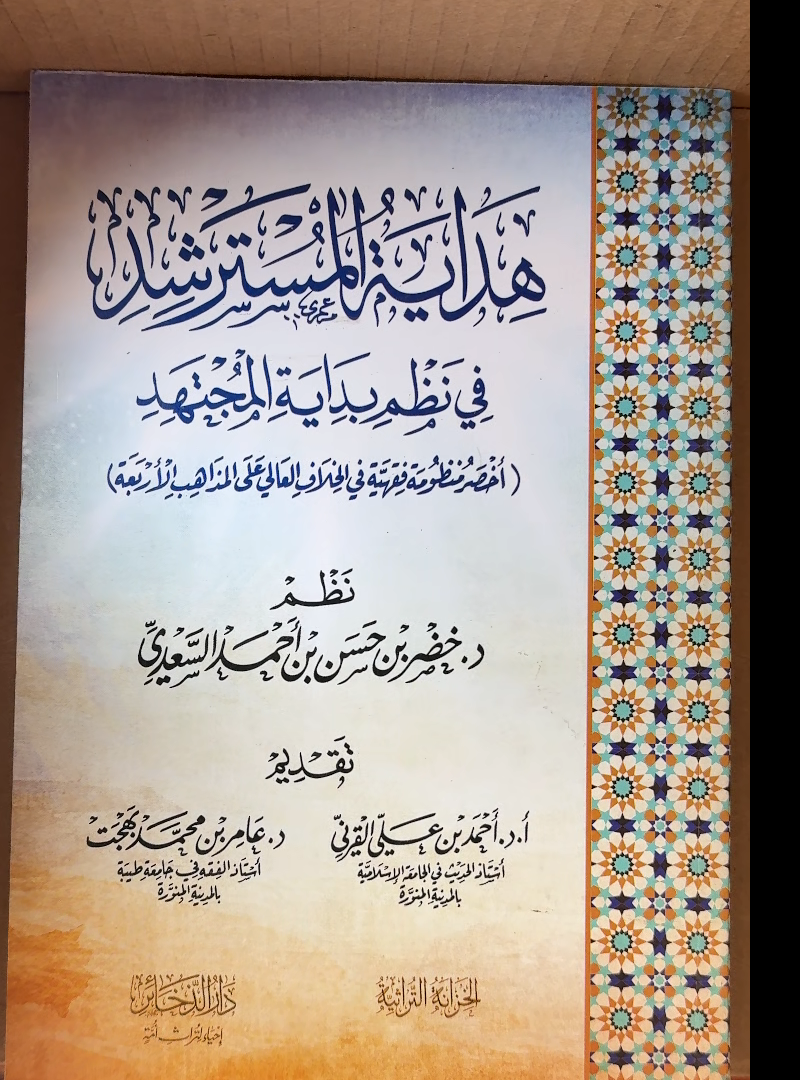 هِدَايَةُ المُسْتَرْشِدِ
فِي نَظْمِ بِدَايَةِ المُجْتَهِدِ
(أَخْصَرُ مَنْظُومَة فِقْهِيَّة فِي الخِلَافِ العَالِي عَلَى المَذَاهِبِ الأَرْبَعَة)
نَظْم
د. خَضِر بْن حَسَن بْن أَحْمَد السَّعْدِيّ
تَقْدِيم
أ.د. أَحْمَد بْن عَلِيّ القَرْنِيّ
أستاذ الحديث في الجامعة الإسلامية
بالمدينة المنوّرة
د. عَامِر بْن مُحَمَّد بَهْجَت
أستاذ الفقه في جامعة طيبة
بالمدينة المنوّرة
الخِزَانَةُ التُّرَاثِيَّةُ
دَارُ الذَّخَائِر
إحياء لتراث أمّة